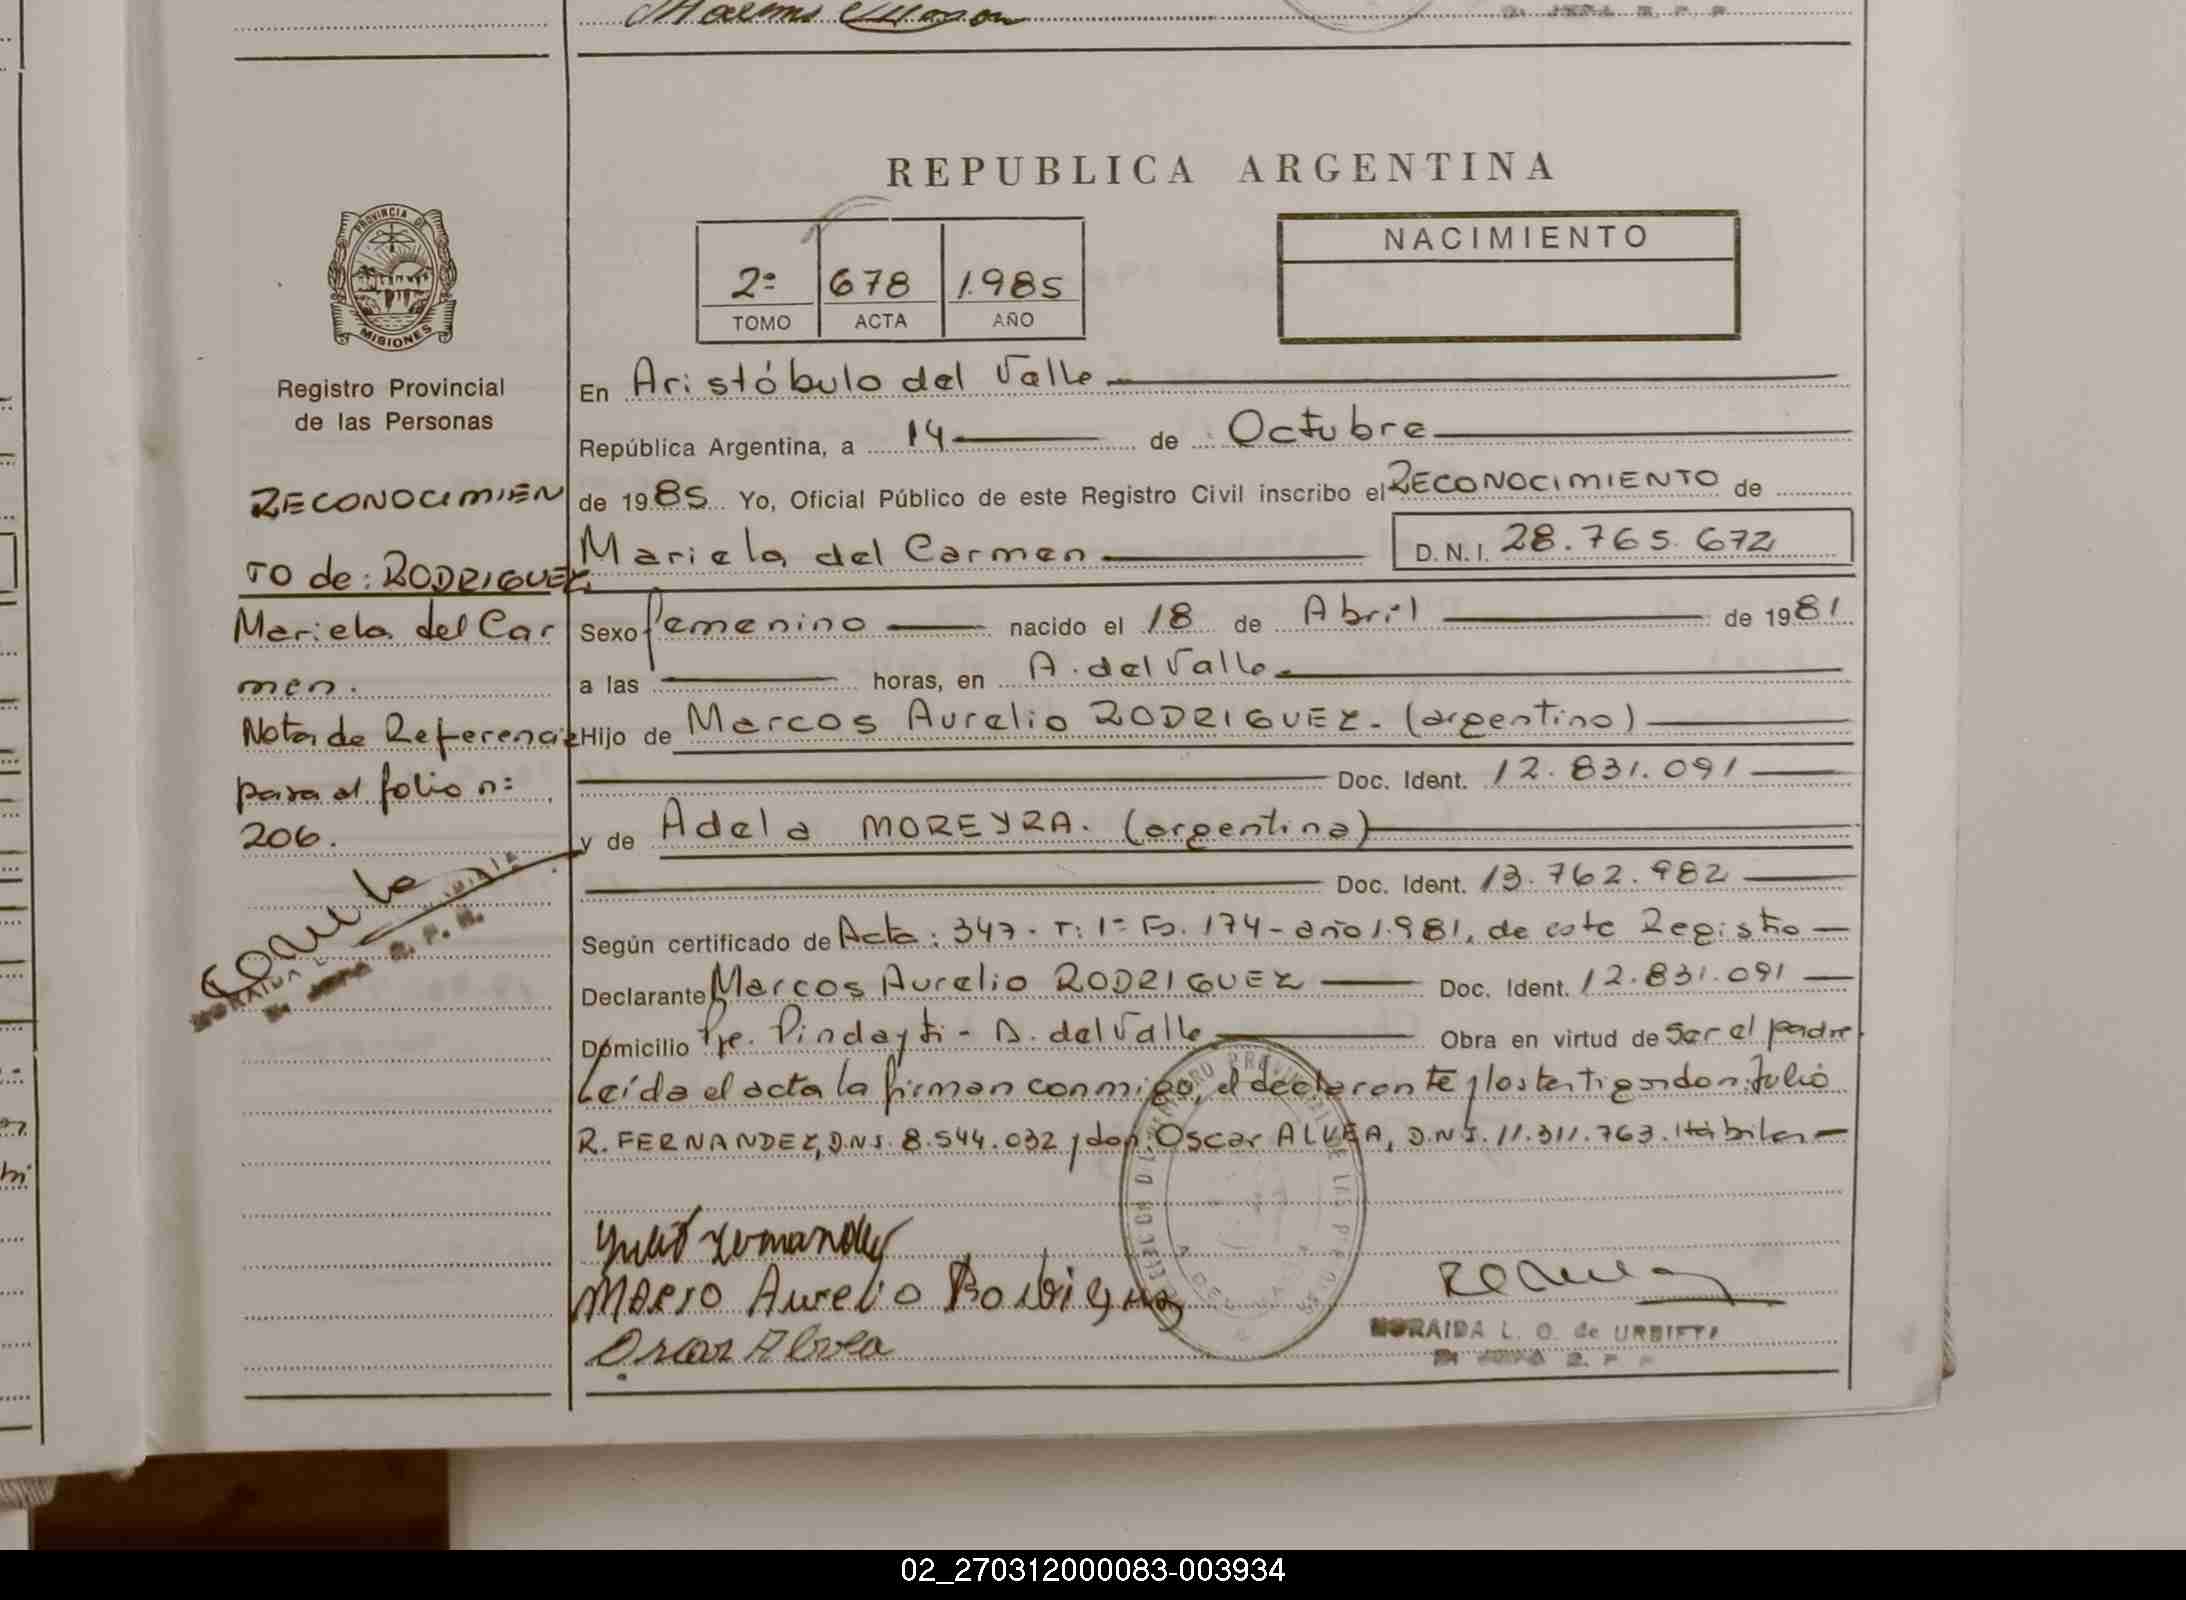 REPUBLICA ARGENTINA
PROVINCIA DE
MISIONES
Registro Provincial
de las Personas
2º 678 1.985
TOMO ACTA AÑO
NACIMIENTO
RECONOCIMIEN
TO de: RODRIGUEZ
Mariela del Car
men.
Nota de Referencia
para el folio nº
206.
En Aristóbulo del Valle
República Argentina, a 14 de Octubre
de 1985 Yo, Oficial Público de este Registro Civil inscribo el RECONOCIMIENTO de
Mariela del Carmen D.N.I. 28.765.672
Sexo femenino nacido el 18 de Abril de 1981
a las horas, en A. del Valle
Hijo de Marcos Aurelio RODRIGUEZ. (argentino)
Doc. Ident. 12.831.091
y de Adela MOREYRA. (argentina)
Doc. Ident. 13.762.982
Según certificado de Acta: 347. T: 1º Fo. 174 - año 1.981, de este Registro
Declarante Marcos Aurelio RODRIGUEZ Doc. Ident. 12.831.091
Domicilio Pje. Pindayti - A. del Valle Obra en virtud de ser el padre
Leída el acta la firman conmigo, el declarante y los testigos don: Julio
R. FERNANDEZ, D.N.I. 8.544.032 y don: Oscar ALVEA, D.N.I. 11.311.763. Hábiles
Julio Fernandez
Marso Aurelio Rodriguez
Oscar Alvea
NORAIDA L. O. de URBIETA
02_270312000083-003934